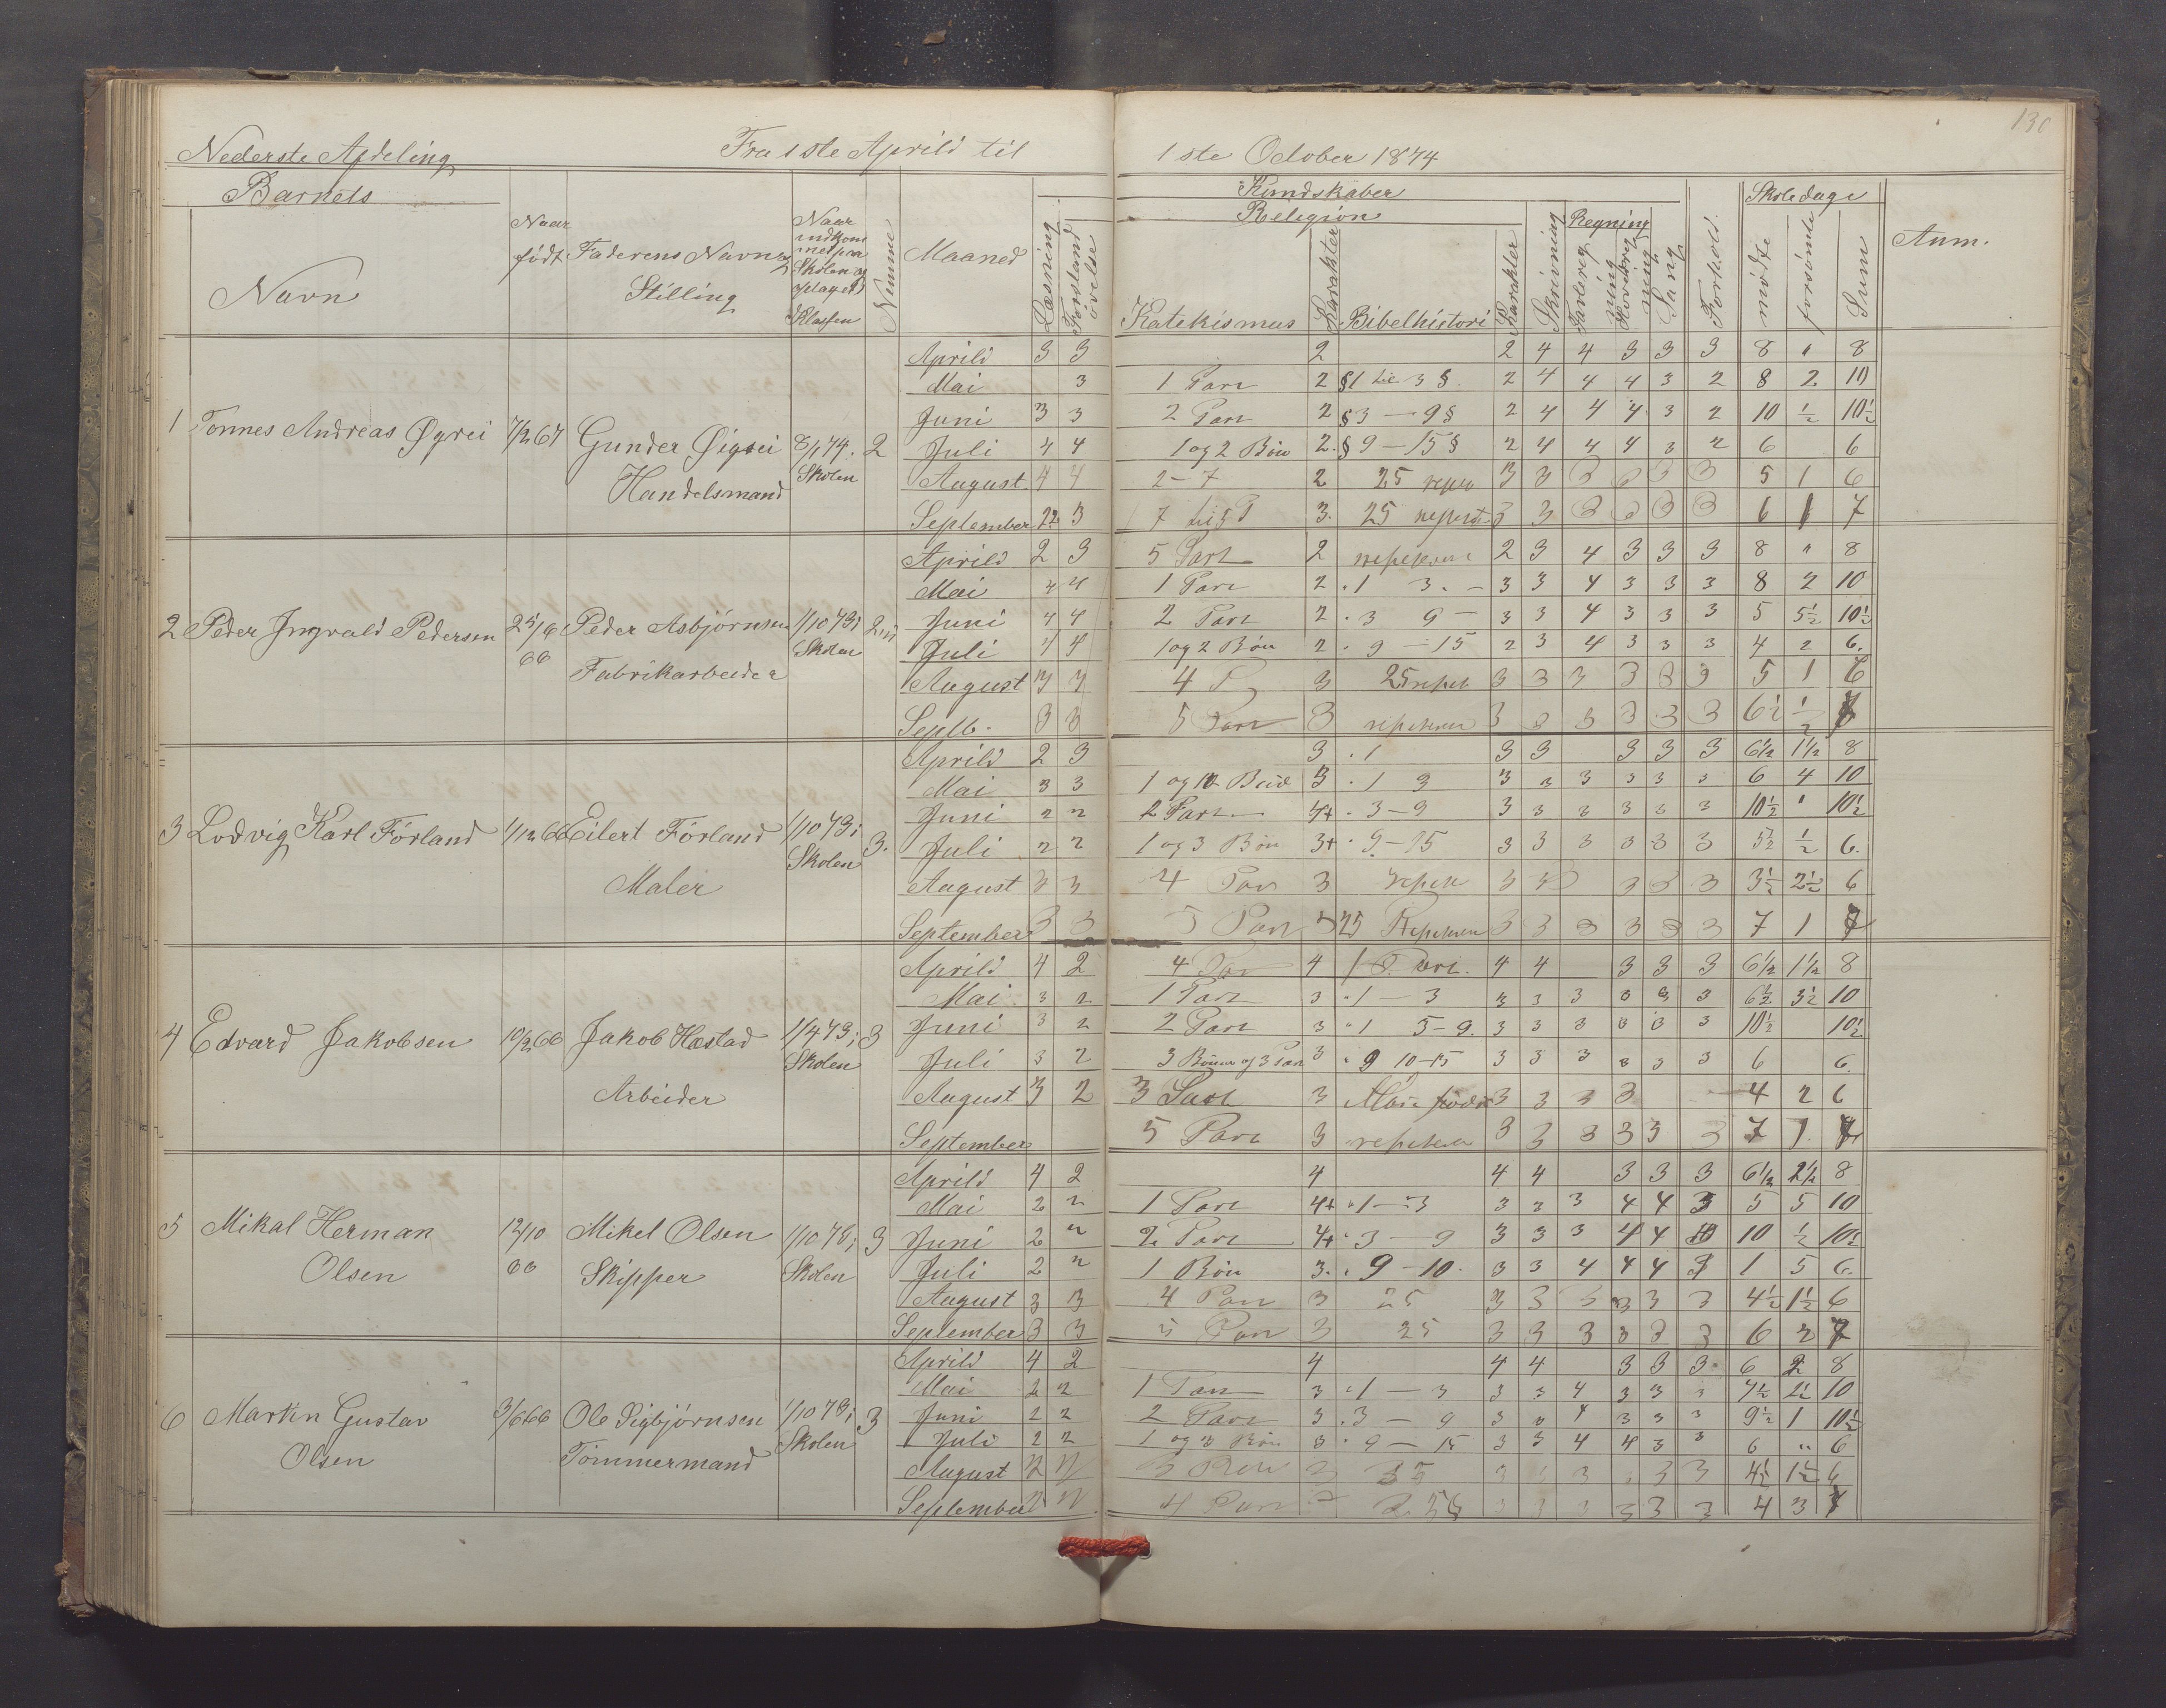 130
Nederste Afdeling Fra 1ste Aprild til 1ste October 1874
Barnets Kundskaber Skoledage
Religion Regning
Navn Naar født Faderens Navn og Stilling Naar indkommet paa Skolen og optaget i Klassen Nemme Maaned Læsning Forstandsøvelse Katekismus Karakter Bibelhistori Karakter Skrivning Tavleregning Hovedregning Sang Forhold mødte forsømte Sum Anm.
Aprild 3 3 2 2 4 4 3 3 3 8 " 8
Mai 3 1 Part 2 §1 til 3 §. 2 4 4 4 3 2 8 2 10
Juni 3 3 2 Part 2 §3 — 9§ 2 4 4 4 3 2 10 ½ 10½
1 Tonnes Andreas Øgrei 7/2 67 Gunder Øigrei 8/1 74. 2 Juli 4 4 1 og 2 Bøn 2. § 9 — 15 § 2 4 4 4 3 2 6 6
Handelsmand Skolen August 4 4 2 - 7 2 25 3 3 3 3 3 3 5 1 6
September 3 7 til 5 P 3. 25 3 3 3 3 3 3 6 1 7
Aprild 2 3 5 Part 2 2 3 4 3 3 3 8 " 8
Mai 4 4 1 Part 2 . 1 3. - 3 3 4 3 3 3 8 2 10
2 Peder Ingvald Pedersen 25/6 Peder Asbjørnsen 1/10 73; Juni 4 4 2 Part 2 . 3 9 - 3 3 4 3 3 3 5 5½ 10½
66 Fabrikarbeider Skolen Juli 4 4 1 og 2 Bøn 2 . 9 — 15 2 3 4 3 3 3 4 2 6.
August 3 3 4 P 3 25 repet 3 3 3 3 3 3 5 1 6
Septb. 3 3 5 Part 3 3 3 3 3 3 3 6½ ½ 7
Aprild 2 3 3 . 1 3 3 3 3 3 6½ 1½ 8
Mai 3 3 1 og 10 Bud 3 . 1 3 3 3 3 3 3 3 6 4 10
Juni 2 2 2 Part 4+ . 3 - 9 3 3 3 3 3 3 10½ " 10½
3 Lodvig Karl Förland 1/12 66 Eilert Förland 1/10 73; 3. Juli 2 2 1 og 3 Bøn 3+ . 9 - 15 3 3 3 3 3 3 5½ ½ 6.
Maler Skolen August 3 3 4 Part 3 repet 3 3 3 3 3 3½ 2½ 6
September 3 3 5 Part 3 25 3 3 3 3 3 3 7 1 7
Aprild 4 2 4 Part 4 1 Part. 4 4 3 3 3 6½ 1½ 8
Mai. 3 2 1 Part 3 . 1 — 3 3 3 3 3 3 3 6½ 3½ 10
4 Edvard Jakobsen 10/2 66 Jakob Hæstad 1/4 73; 3 Juni 3 2 2 Part 3 " 1 5-9. 3 3 3 3 3 3 10½ 10½
Arbeider Skolen Juli 3 2 3 Bønner og 3 Part 3 . 9 10-15 3 3 3 3 3 3 6 6.
August 3 2 3 Part 3 3 3 3 3 4 2 6
September 5 Part 3 3 3 3 3 3 3 7 1. 7
Aprild 4 2 4 4 4 3 3 3 6½ 2½ 8
Mai 2 2 1 Part 4+ . 1 — 3 3 3 3 4 4 3 5 5 10
5 Mikal Herman 12/10 Mikel Olsen 1/10 73; 3 Juni 2 2 2 Part 4+ . 3 — 9 3 3 3 4 4 10 ½ 10½
Olsen 66 Skipper Skolen Juli 2 2 1 Bön 3. . 9 - 10. 3 3 4 4 4 3 1 5 6.
August 3 3 4 Part 3 25 3 3 3 3 3 3 4½ 1½ 6
September 3 3 5 Part 3 25 3 3 3 3 3 3 6 2 7
Aprild 4 2 4 4 4 3 3 3. 6 2 8
Mai 2 2 1 Part 3 . 1 — 3 3 3 4 3 3 3 7½ 2½ 10
6 Martin Gustav 3/6 66 Ole Sigbjørnsen 1/10 73; 3 Juni 2 2 2 Part 3 . 3 — 9 3 3 4 3 3 3 9½ 1 10½
Olsen Tömmermand Skolen Juli 2 2 1 og 3 Bön 3 . 9 — 15 3 3 4 4 3 3 6 " 6
August 2 2 3 3 3 3 3 4½ 1½ 6
September 2 2 4 Part 3 3 3 3 3 4 3 7